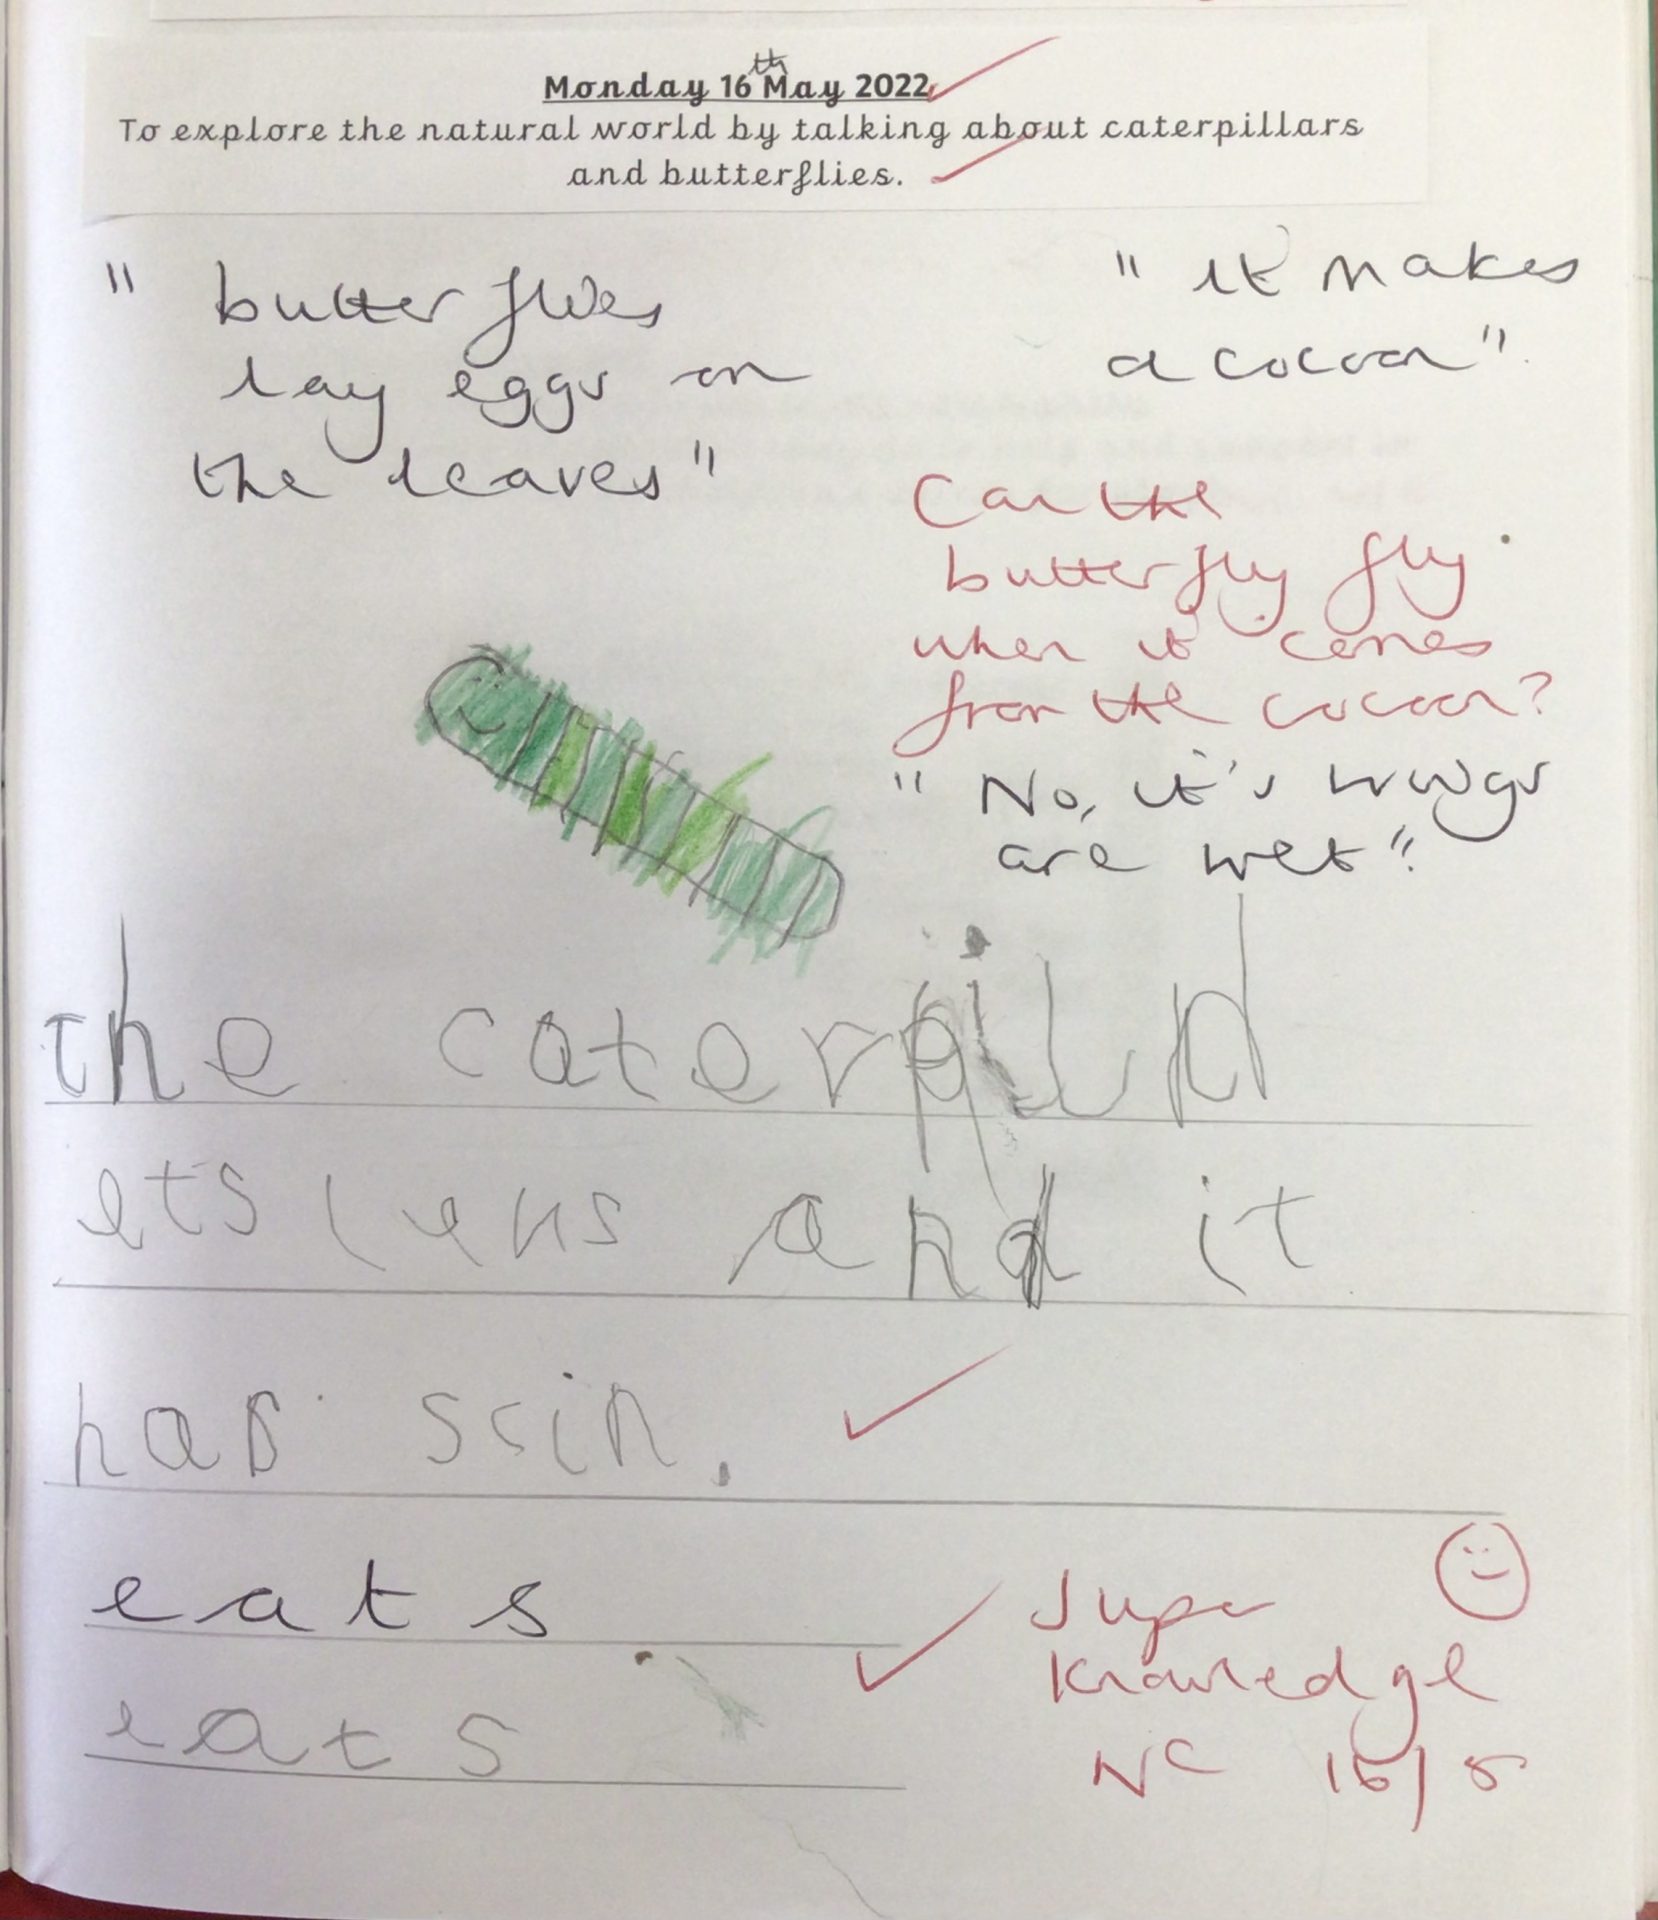 Monday 16th May 2022
To explore the natural world by talking about caterpillars
and butterflies.
" butterflies
lay eggs on
the leaves"
" it makes
a cocoon".
Can the
butterfly fly
when it comes
from the cocoon?
" No, it's wings
are wet".
the caterpilu
ets levs and it
has scin.
eats
eats
Super
Knowledge
NC 16/5